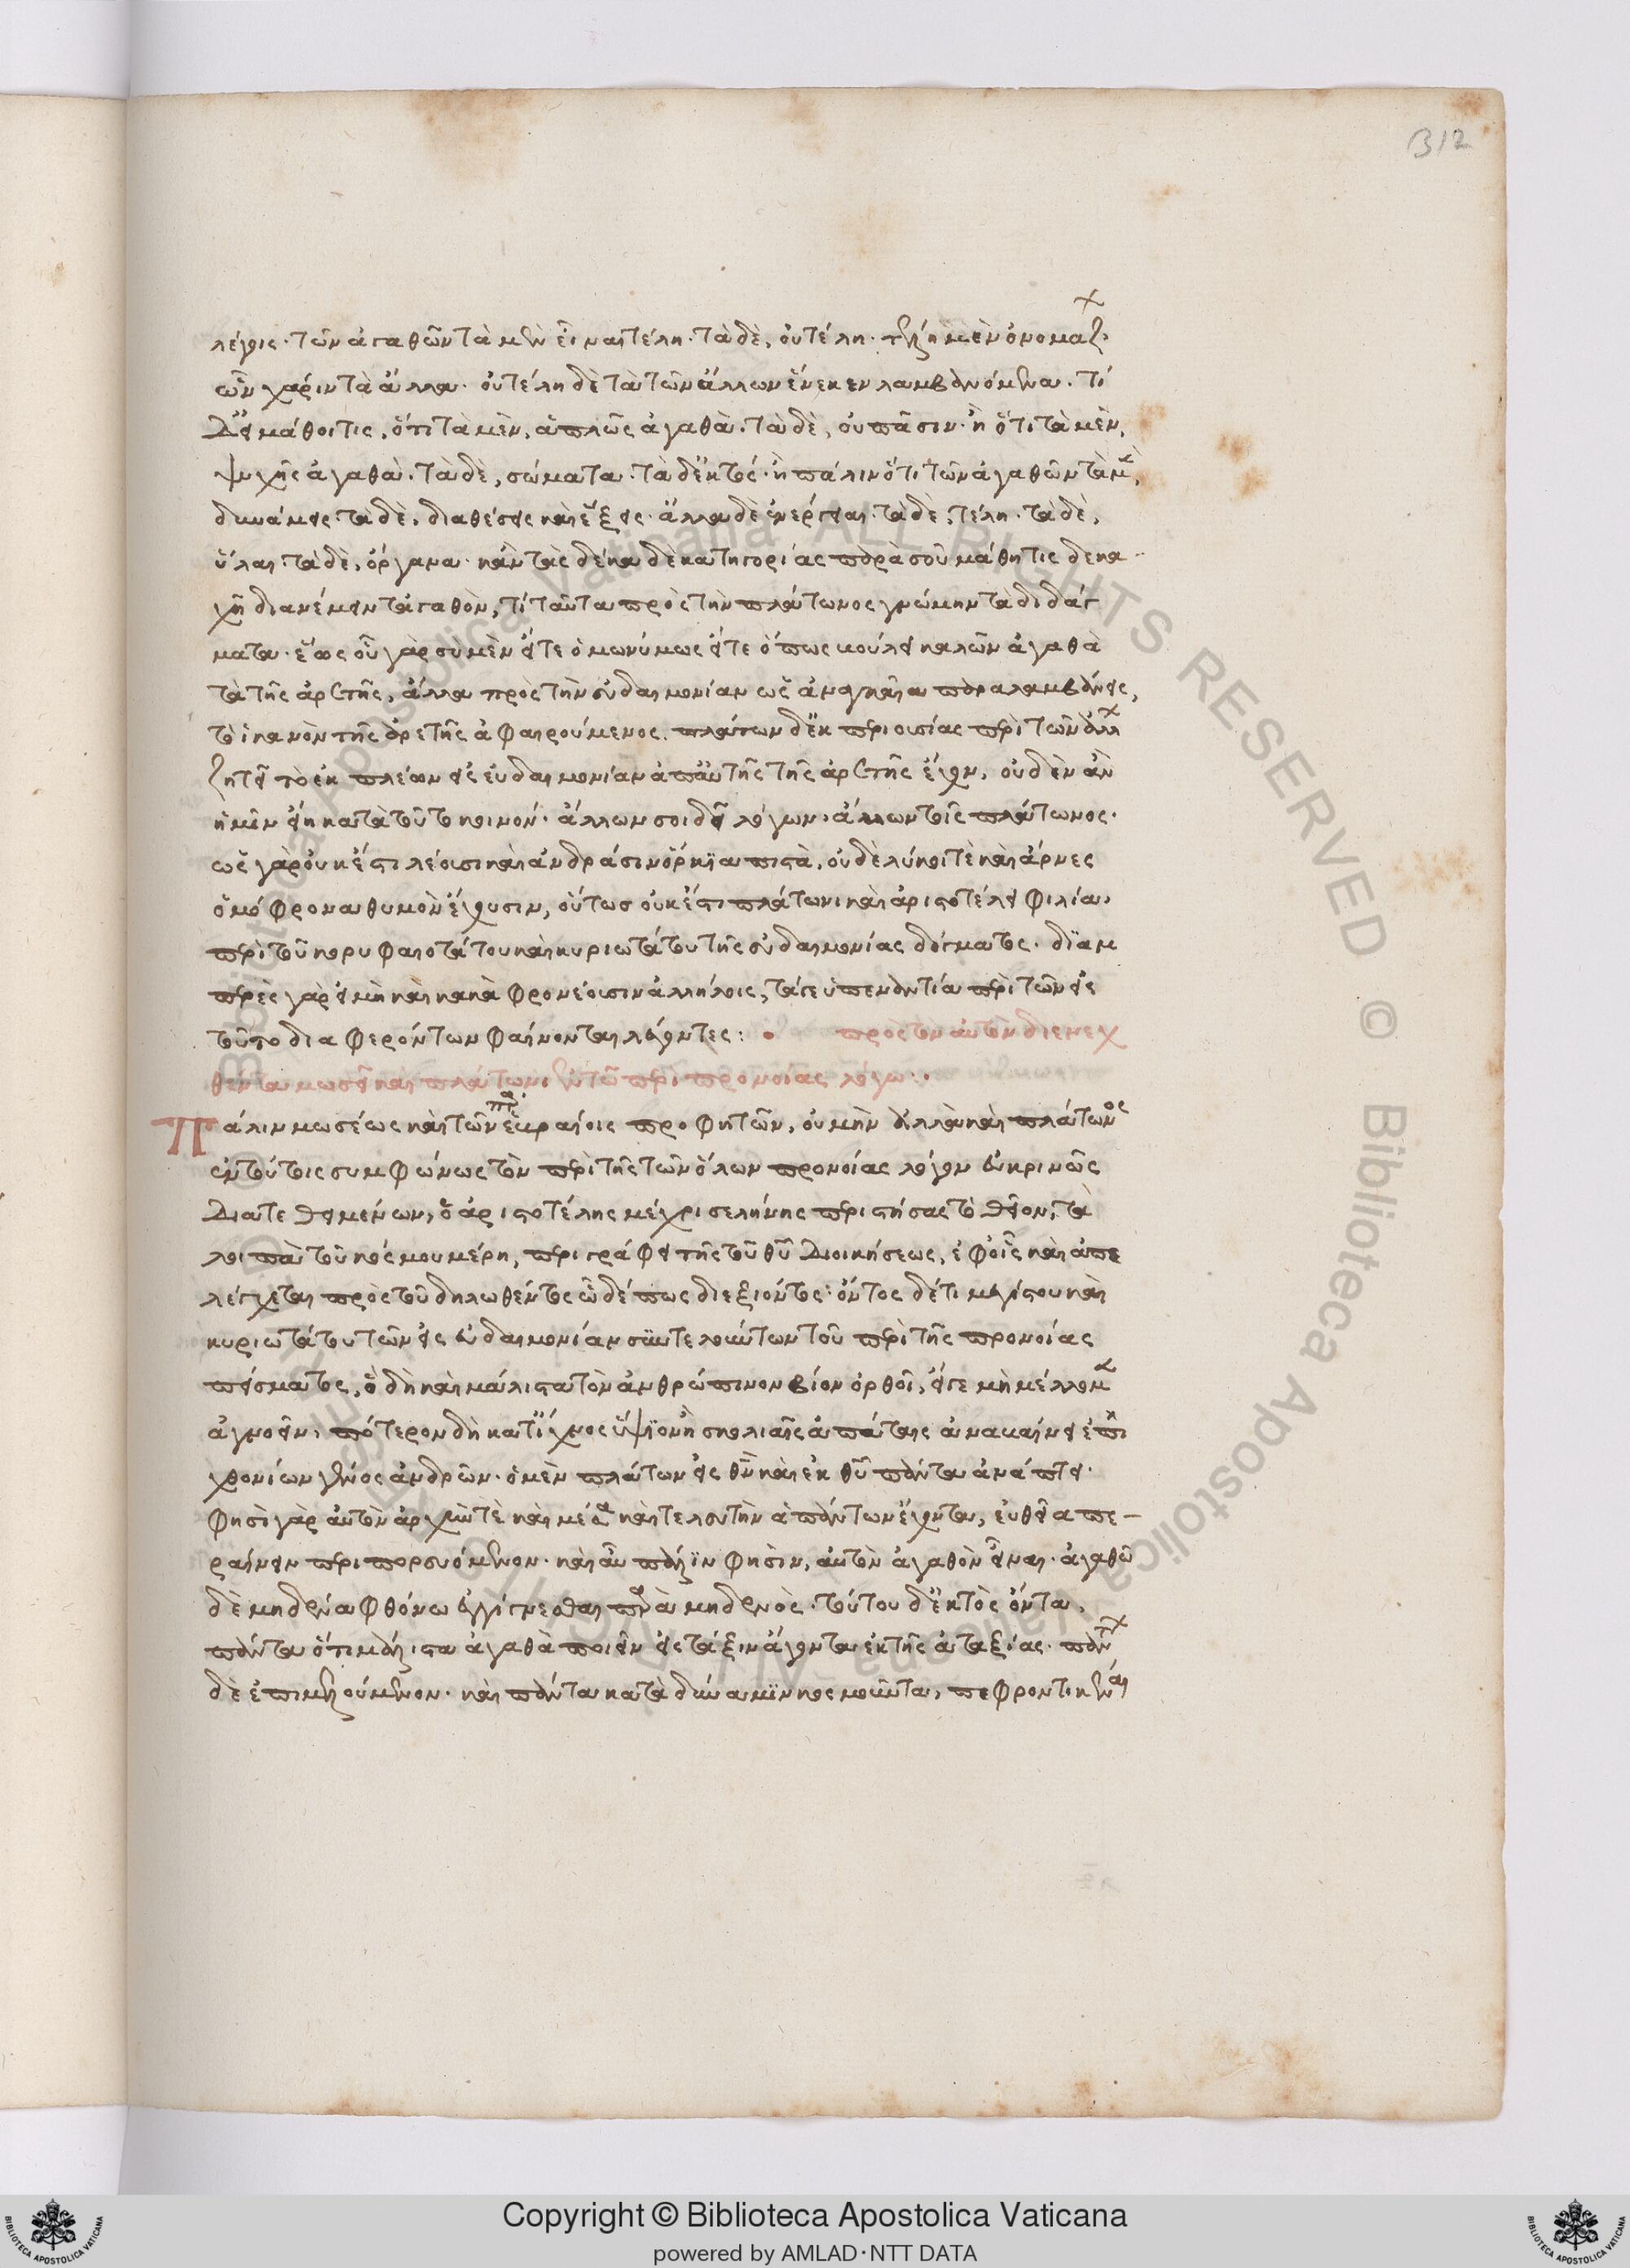 312
λέγεις· τῶν ἀγαθῶν τὰ μὲν εἶναι τέλη· τὰ δὲ, οὐ τέλη· τέλη μὲν ὀνομάζ
ὧν χάριν τὰ ἄλλα· οὐ τέλη δὲ τὰ τῶν ἄλλων ἕνεκεν λαμβανόμενα. τί
δ' εἰ μάθοι τις, ὅτι τὰ μὲν, ἁπλῶς ἀγαθὰ. τὰ δὲ, οὐ πᾶσιν· ἢ ὅτι τὰ μὲν,
ψυχῆς ἀγαθὰ. τὰ δὲ, σώματα· τὰ δ' ἐκτός· ἢ πάλιν ὅτι τῶν ἀγαθῶν τὰ μ,
δυνάμεις· τὰ δὲ, διαθέσεις καὶ ἕξεις· ἄλλα δὲ ἐνέργειαι· τὰ δὲ, τέλη· τὰ δὲ,
ὗλαι· τὰ δὲ, ὄργανα· κἂν τὰς δέκα δὲ κατηγορίας παρὰ σοῦ μάθῃ τις δεκα
χῆ διανέμειν τἀγαθὸν, τί ταῦτα πρὸς τὴν πλάτωνος γνώμην τὰ διδάγ
ματα· ἕως οὗ γὰρ σὺ μὲν εἴτε ὁμωνύμως εἴτε ὅπως βούλει καλῶν ἀγαθὰ
τὰ τῆς ἀρετῆς, ἄλλα πρὸς τὴν εὐδαιμονίαν ὡς ἀναγκαῖα παραλαμβάνεις,
τὸ ἱκανὸν τῆς ἀρετῆς ἀφαιρούμενος. πλάτων δ' ἐκ περιουσίας περὶ τῶν ἀλλ
ζητεῖ τὸ ἐκ πλέων εἰς εὐδαιμονίαν ἀπ' αὐτῆς τῆς ἀρετῆς ἔχων, οὐδὲν ἂν
ἡμῖν εἴη κατὰ τοῦτο κοινόν· ἄλλων σοι δεῖ λόγων, ἄλλων τοῖς πλάτωνος·
ὡς γὰρ οὐκ ἔστι λέουσι καὶ ἀνδράσιν ὅρκια πιστὰ, οὐδὲ λύκοι τὲ καὶ ἄρνες
ὁμόφρονα θυμὸν ἔχουσιν, οὕτως οὐκ ἔστι πλάτωνι καὶ ἀριστοτέλει φιλία,
περὶ τοῦ κορυφαιοτάτου καὶ κυριωτάτου τῆς εὐδαιμονίας δόγματος. διαμ
περὲς γὰρ εἰ μὴ καὶ κακὰ φρονέουσιν ἀλλήλοις, τά γε ὑπεναντία περὶ τῶν εἰς
τοῦτο διαφερόντων φαίνονται λέγοντες: • πρὸς τὸν αὐτὸν διενεχ
θέντα μωσεῖ καὶ πλάτωνι ἐν τῶ περὶ προνοίας λόγω:·
Πάλιν μωσέως καὶ τῶν παρ' ἑβραίοις προφητῶν, οὐ μὴν ἀλλὰ καὶ πλάτωνος
ἐν τούτοις συμφώνως τὸν περὶ τῆς τῶν ὅλων προνοίας λόγον εὐκρινῶς
διατεθειμένων, ὁ ἀριστοτέλης μέχρι σελήνης περιστήσας τὸ θεῖον, τὰ
λοιπὰ τοῦ κόσμου μέρη, περιγράφει τῆς τοῦ θῦ διοικήσεως, ἐφ' οἷς καὶ ἀπε
λέγχεται πρὸς τοῦ δηλωθέντος ὧδέ πως διεξιόντος· ὄντος δ' ἔτι μεγίστου καὶ
κυριωτάτου τῶν εἰς εὐδαιμονίαν συντελούντων τοῦ περὶ τῆς προνοίας
πείσματος, ὃ δὴ καὶ μάλιστα τὸν ἀνθρώπινον βίον ὀρθοῖ, εἴ γε μὴ μέλλομ
ἀγνοεῖν, πότερον δὴ κατ' ἴχνος ὕψιον ἢ σκολιαῖς ἀπάταις ἀναβαίνει ἐπι
χθονίων γένος ἀνδρῶν· ὁ μὲν πλάτων εἰς θν καὶ ἐκ θῦ πάντα ἀνάπτει·
φησὶ γὰρ αὐτὸν ἀρχὴν τὲ καὶ μέσα καὶ τελευτὴν ἁπάντων ἔχοντα, εὐθεῖα πε
ραίνειν περιπορευόμενον· καὶ αὖ πάλιν φησὶν, αὐτὸν ἀγαθὸν εἶναι· ἀγαθῶ
δὲ μηδένα φθόνω ἐγγίγνεσθαι περὶ μηδενὸς· τούτου δ' ἐκτὸς ὄντα,
πάντα ὅτι μάλιστα ἀγαθὰ ποιεῖν εἰς τάξιν ἄγοντα ἐκ τῆς ἀταξίας· πάντ
δὲ ἐπιμελούμενον· καὶ πάντα κατὰ δύναμιν κοσμοῦντα, πεφροντικέναι